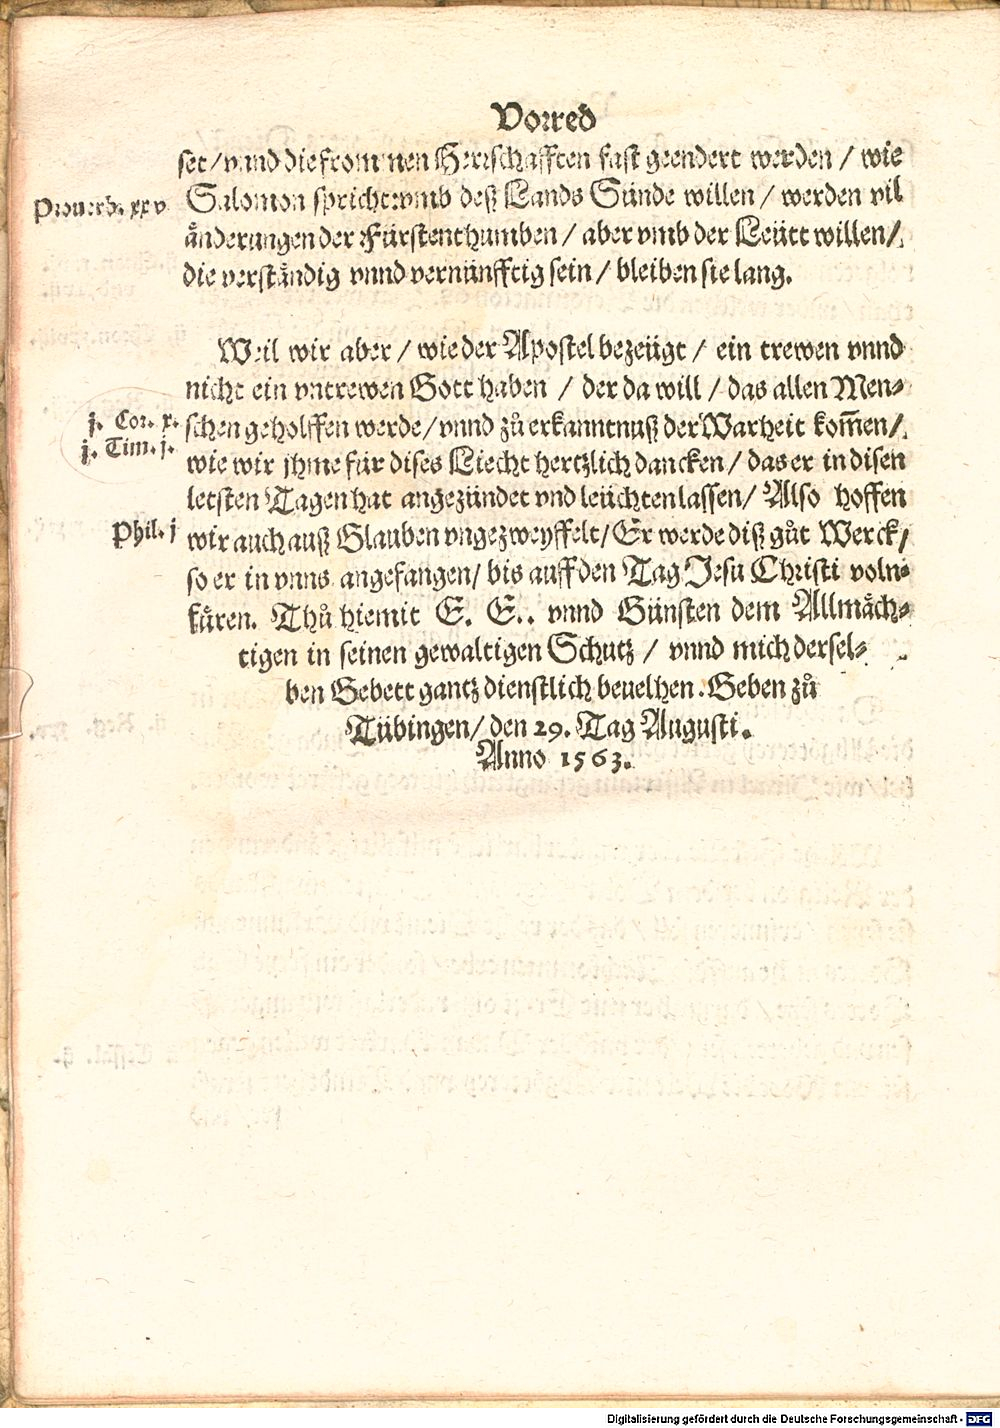 Vorred
set / vnnd die frommen Herrschafften fast geendert werden / wie
Prouerb. xxv
Salomon spricht: vmb deß Lands Sünde willen / werden vil
änderungen der Fürstenthumben / aber vmb der Leütt willen /
die verständig vnnd vernünfftig sein / bleiben sie lang.
Weil wir aber / wie der Apostel bezeügt / ein trewen vnnd
nicht ein vntrewen Gott haben / der da will / das allen Men⸗
j. Cor. x.
schen geholffen werde / vnnd zů erkanntnuß der Warheit kom̄en /
j. Tim. j.
wie wir jhme für dises Liecht hertzlich dancken / das er in disen
letsten Tagen hat angezündet vnd leüchten lassen / Also hoffen
Phil. j
wir auch auß Glauben vngezweyffelt / Er werde diß gůt Werck /
so er in vnns angefangen / bis auff den Tag Jesu Christi voln⸗
füren. Thů hiemit E. E.. vnnd Günsten dem Allmäch⸗
tigen in seinen gewaltigen Schutz / vnnd mich dersel⸗
ben Gebett gantz dienstlich beuelhen. Geben zů
Tübingen / den 29. Tag Augusti.
Anno 1563.
Digitalisierung gefördert durch die Deutsche Forschungsgemeinschaft - DFG